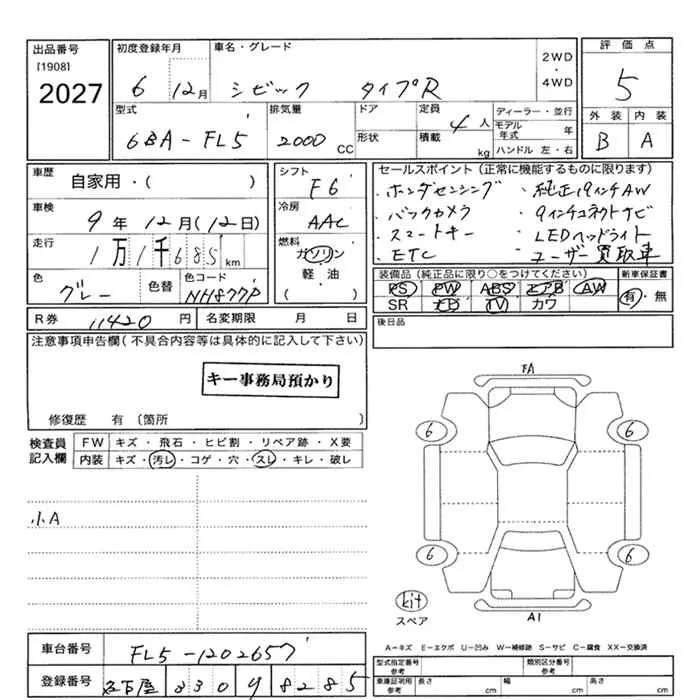 出品番号
[1908]
2027
初度登録年月
6 12月
車名・グレード
シビック タイプR
2WD
・
4WD
評価点
5
外装 内装
B A
型式
6BA-FL5
排気量
2000 CC
ドア
形状
定員
4人
積載
kg
ディーラー・並行
モデル年式 年
ハンドル 左・右
車歴
自家用・( )
車検
9年 12月(12日)
走行
1万1千685km
色
グレー
色替
色コード
NH877P
シフト
F6
冷房
AAC
燃料
ガソリン
軽・油
( )
セールスポイント(正常に機能するものに限ります)
・ホンダセンシング ・純正19インチAW
・バックカメラ ・9インチコネクトナビ
・スマートキー ・LEDヘッドライト
・ETC ・ユーザー買取車
装備品(純正品に限り○をつけてください)
新車保証書
PS PW ABS エアB AW
SR ナビ TV カワ
有・無
R券 11420円
名変期限 月 日
後日品
注意事項申告欄(不具合内容等は具体的に記入して下さい)
キー事務局預かり
修復歴 有〔箇所 〕
検査員
記入欄
FW キズ・飛石・ヒビ割・リペア跡・X要
内装 キズ・汚レ・コゲ・穴・スレ・キレ・破レ
小A
FA
6 6
6 6
kit
スペア
A1
A-キズ E-エクボ U-凹み W-補修跡 S-サビ C-腐食 XX-交換済
車台番号
FL5-1202657
登録番号
名古屋 330 ﾘ 8285
型式指定番号
参考
類別区分番号
参考
車庫証明用
参考
長さ cm
幅 cm
高さ cm